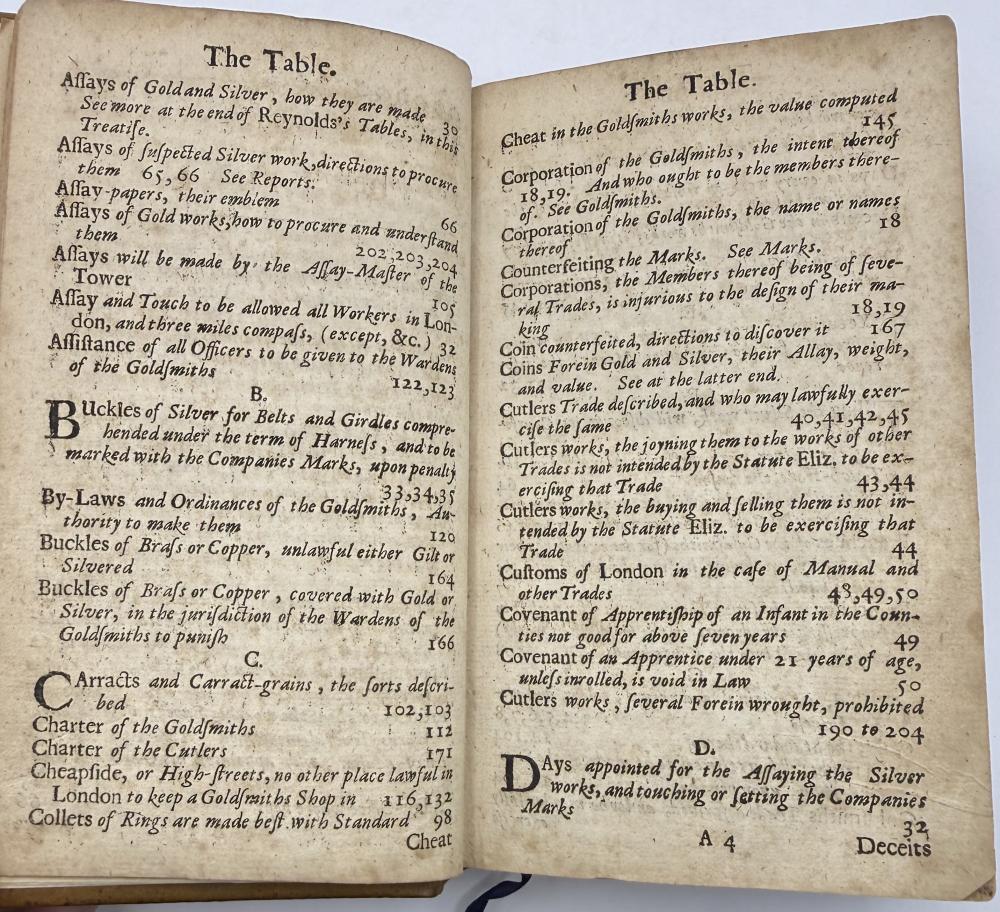 The Table.
Aſſays of Gold and Silver, how they are made 30
See more at the end of Reynolds's Tables, in this
Treatiſe.
Aſſays of ſuſpected Silver work, directions to procure
them 65,66 See Reports.
Aſſay-papers, their emblem 66
Aſſays of Gold works, how to procure and underſtand
them 202,203,204
Aſſays will be made by the Aſſay-Maſter of the
Tower 105
Aſſay and Touch to be allowed all Workers in Lon-
don, and three miles compaſs, (except, &c.) 32
Aſſiſtance of all Officers to be given to the Wardens
of the Goldſmiths 122,123
B.
BUckles of Silver for Belts and Girdles compre-
hended under the term of Harneſs, and to be
marked with the Companies Marks, upon penalty
33,34,35
By-Laws and Ordinances of the Goldſmiths, Au-
thority to make them 120
Buckles of Braſs or Copper, unlawful either Gilt or
Silvered 164
Buckles of Braſs or Copper, covered with Gold or
Silver, in the juriſdiction of the Wardens of the
Goldſmiths to puniſh 166
C.
CArracts and Carract-grains, the ſorts deſcri-
bed 102,103
Charter of the Goldſmiths 112
Charter of the Cutlers 171
Cheapſide, or High-ſtreets, no other place lawful in
London to keep a Goldſmiths Shop in 116,132
Collets of Rings are made beſt with Standard 98
Cheat
The Table.
Cheat in the Goldſmiths works, the value computed
145
Corporation of the Goldſmiths, the intent thereof
18,19. And who ought to be the members there-
of. See Goldſmiths.
Corporation of the Goldſmiths, the name or names
thereof 18
Counterfeiting the Marks. See Marks.
Corporations, the Members thereof being of ſeve-
ral Trades, is injurious to the deſign of their ma-
king 18,19
Coin counterfeited, directions to diſcover it 167
Coins Forein Gold and Silver, their Allay, weight,
and value. See at the latter end.
Cutlers Trade deſcribed, and who may lawfully exer-
ciſe the ſame 40,41,42,45
Cutlers works, the joyning them to the works of other
Trades is not intended by the Statute Eliz. to be ex-
erciſing that Trade 43,44
Cutlers works, the buying and ſelling them is not in-
tended by the Statute Eliz. to be exerciſing that
Trade 44
Cuſtoms of London in the caſe of Manual and
other Trades 48,49,50
Covenant of Apprentiſhip of an Infant in the Coun-
ties not good for above ſeven years 49
Covenant of an Apprentice under 21 years of age,
unleſs inrolled, is void in Law 50
Cutlers works, ſeveral Forein wrought, prohibited
190 to 204
D.
DAys appointed for the Aſſaying the Silver
works, and touching or ſetting the Companies
Marks 32
A 4 Deceits